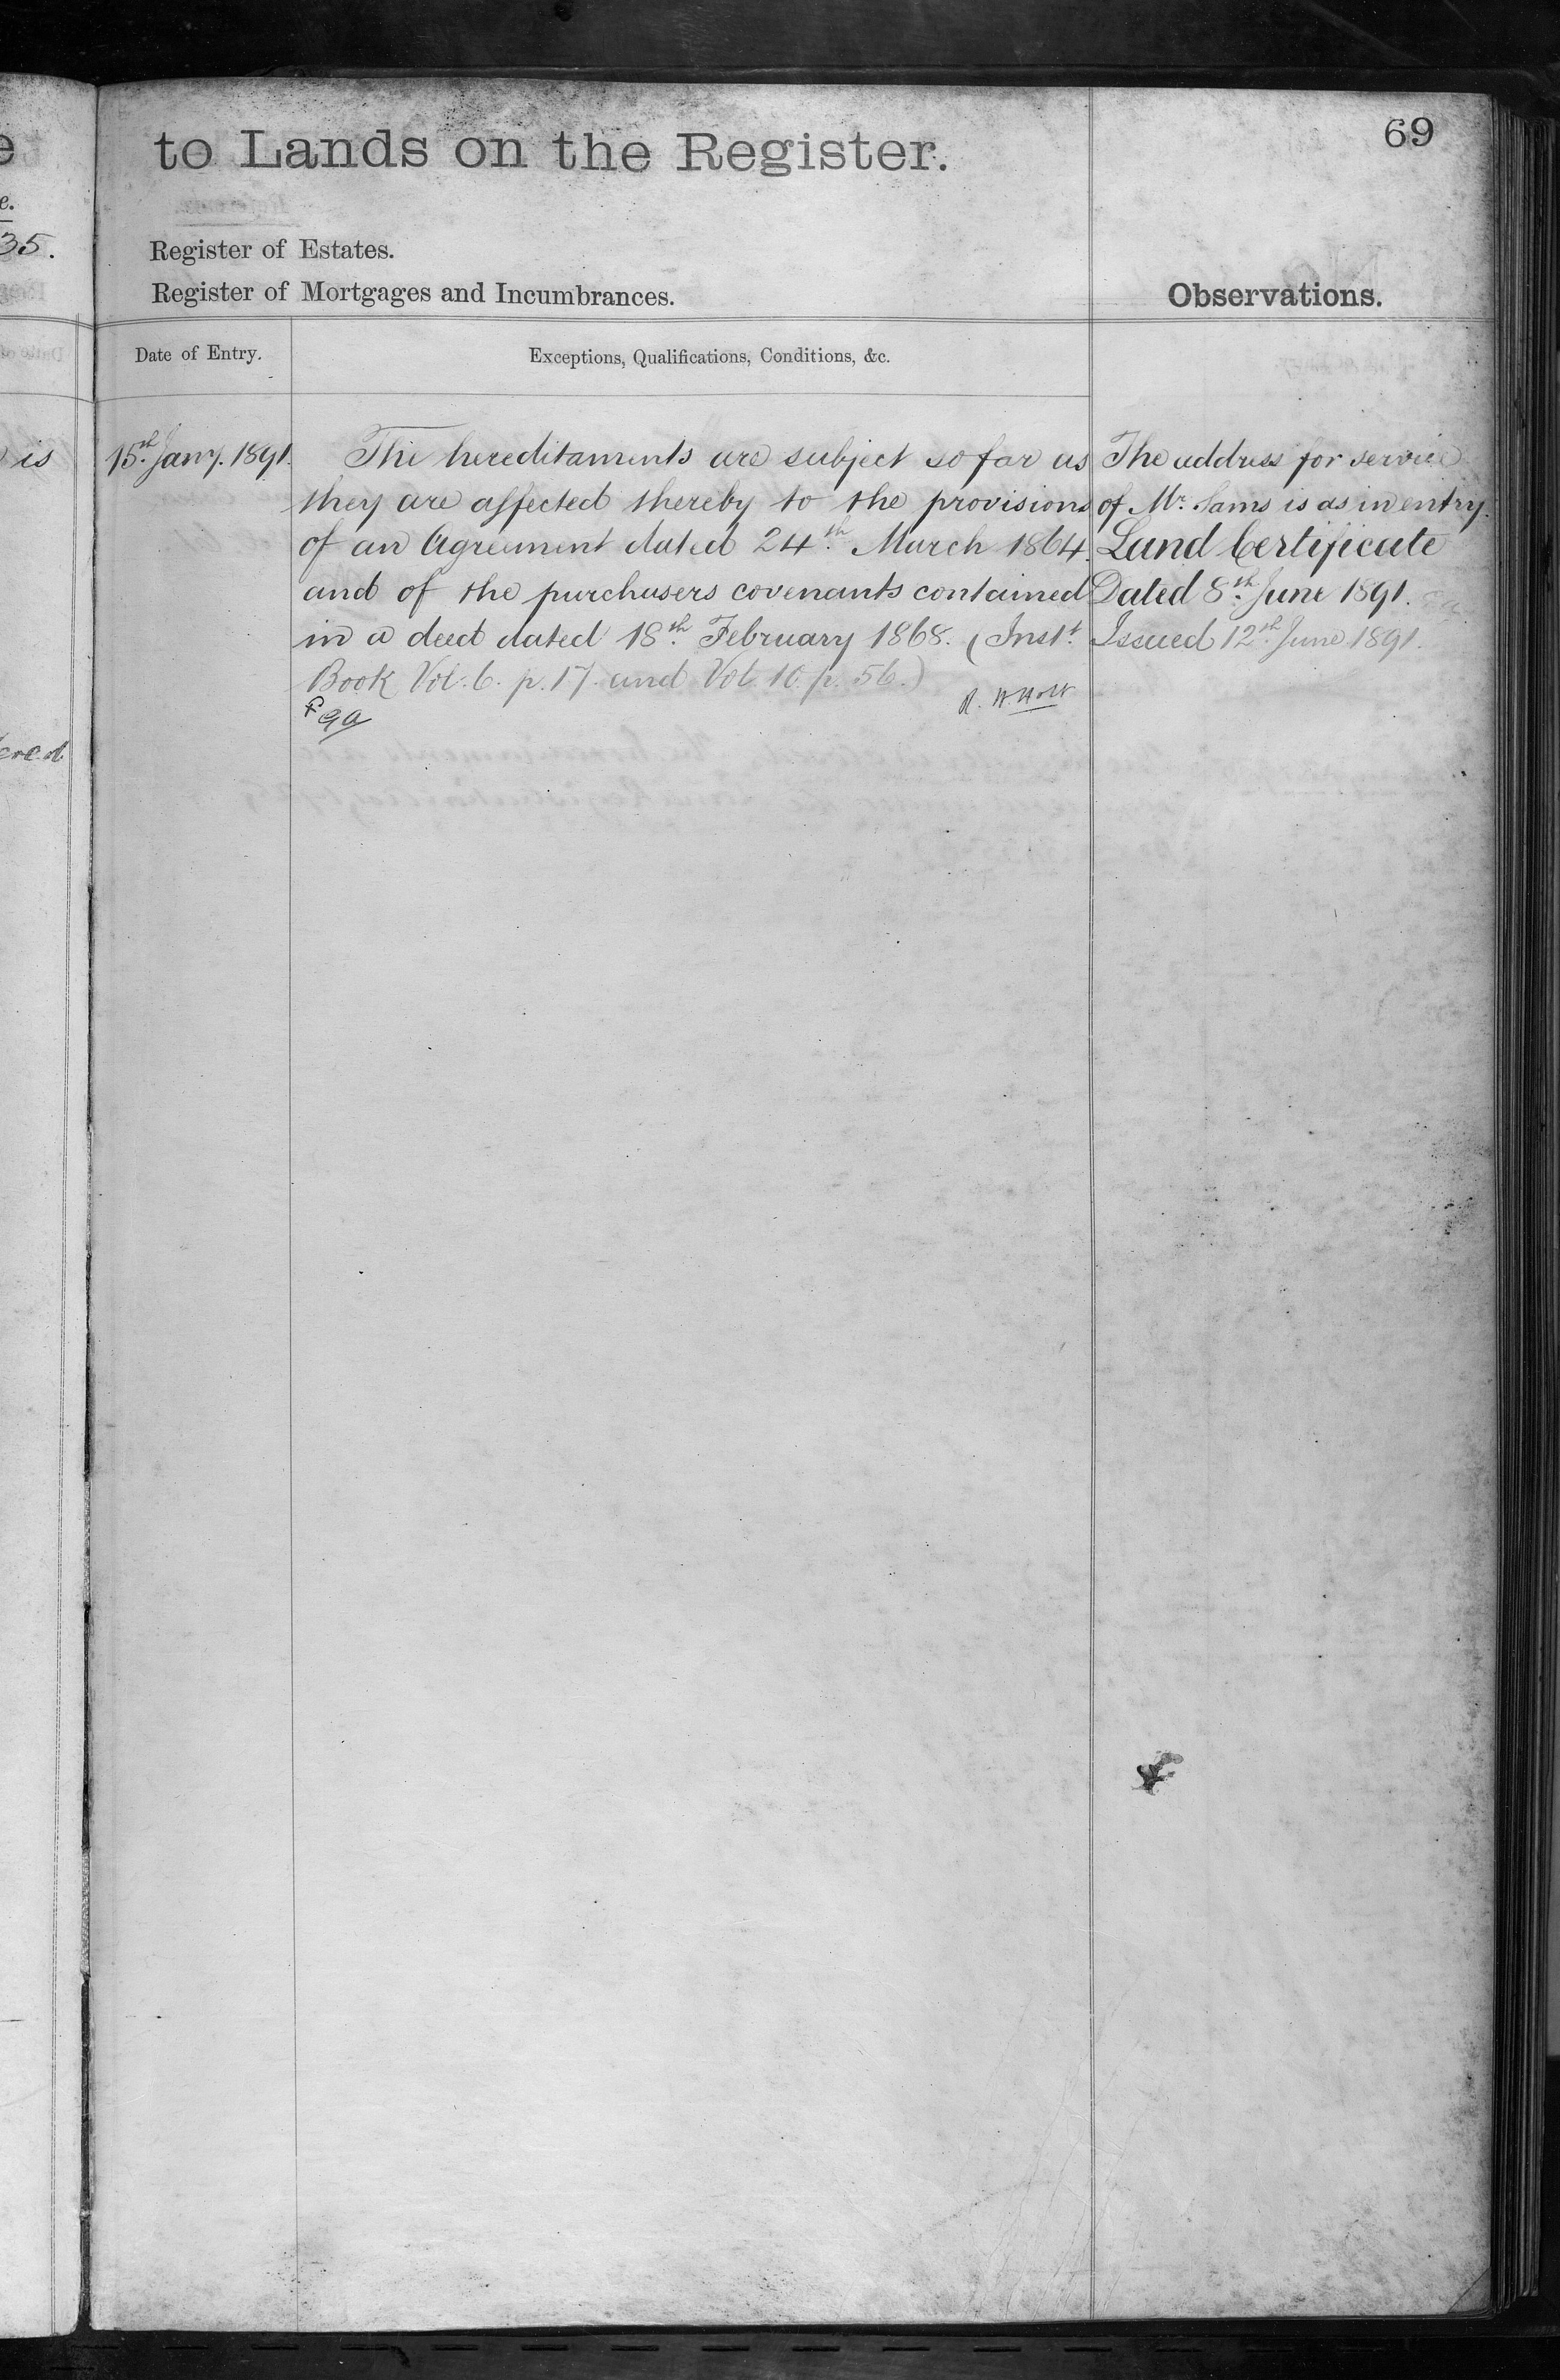 69
to Lands on the Register.
Register of Estates.
Register of Mortgages and Incumbrances.
Observations.
Date of Entry.
Exceptions, Qualifications, Conditions, &c.
15th Jany. 1891.
The hereditaments are subject so far as
they are affected thereby to the provisions
of an Agreement dated 24th March 1864
and of the purchasers covenants contained
in a deed dated 18th February 1868. (Inst.
Book Vol. 6. p. 17. and Vol. 10. p. 56.)
The address for service
of Mr. Sams is as in entry.
Land Certificate
Dated 8th June 1891.
Issued 12th June 1891.
35.
is